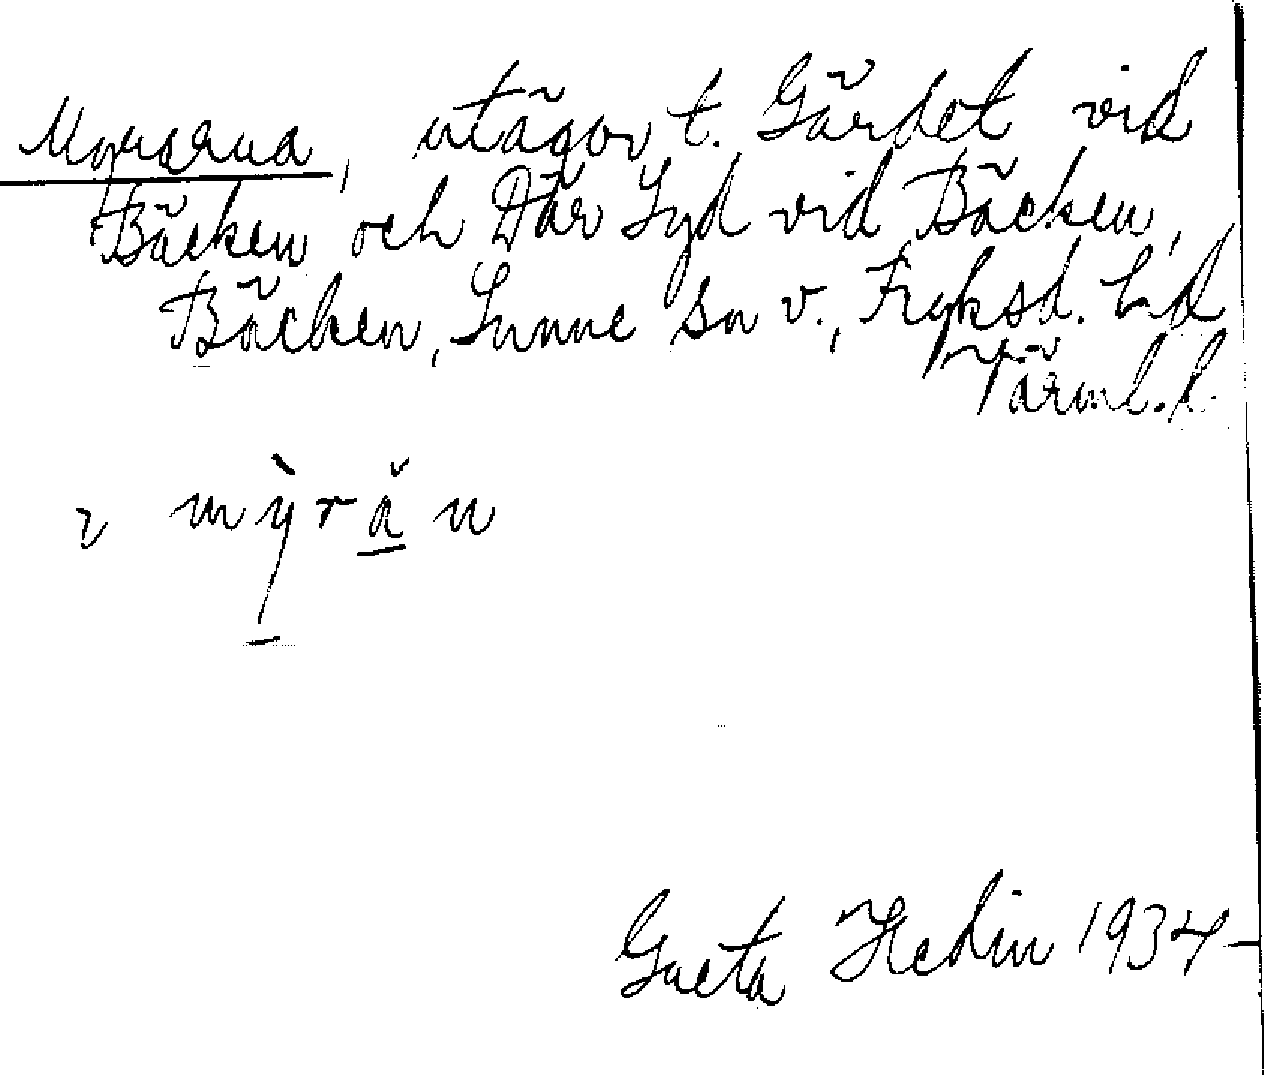 Myrarna, utägor t. Gärdet vid
Bäcken och Där Syd vid Bäcken,
Bäcken, Sunne sn v., Fryksd. hd
Värml. l.
2 mỳrǎn
Greta Hedin 1934